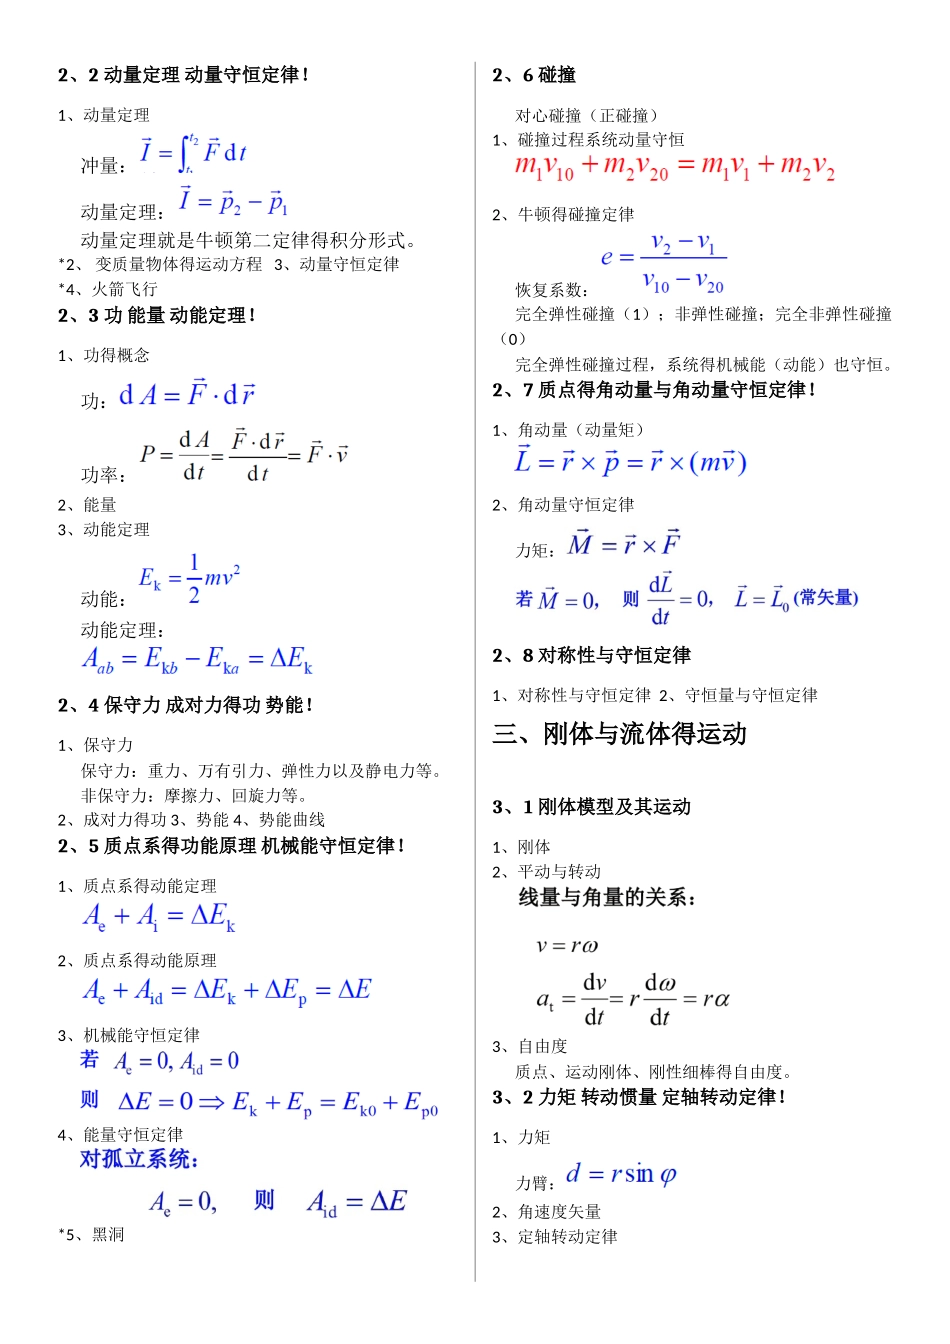 2、2 动量定理 动量守恒定律！
1、动量定理
冲量： $\vec{I} = \int_{t_1}^{t_2} \vec{F} \mathrm{d}t$
动量定理： $\vec{I} = \vec{p}_2 - \vec{p}_1$
动量定理就是牛顿第二定律得积分形式。
*2、 变质量物体得运动方程 3、动量守恒定律
*4、火箭飞行
2、3 功 能量 动能定理！
1、功得概念
功： $\mathrm{d}A = \vec{F} \cdot \mathrm{d}\vec{r}$
功率： $P = \frac{\mathrm{d}A}{\mathrm{d}t} = \frac{\vec{F} \cdot \mathrm{d}\vec{r}}{\mathrm{d}t} = \vec{F} \cdot \vec{v}$
2、能量
3、动能定理
动能： $E_{\mathrm{k}} = \frac{1}{2} mv^2$
动能定理：
$A_{ab} = E_{\mathrm{k}b} - E_{\mathrm{k}a} = \Delta E_{\mathrm{k}}$
2、4 保守力 成对力得功 势能！
1、保守力
保守力：重力、万有引力、弹性力以及静电力等。
非保守力：摩擦力、回旋力等。
2、成对力得功 3、势能 4、势能曲线
2、5 质点系得功能原理 机械能守恒定律！
1、质点系得动能定理
$A_{\mathrm{e}} + A_{\mathrm{i}} = \Delta E_{\mathrm{k}}$
2、质点系得动能原理
$A_{\mathrm{e}} + A_{\mathrm{id}} = \Delta E_{\mathrm{k}} + \Delta E_{\mathrm{p}} = \Delta E$
3、机械能守恒定律
若 $A_{\mathrm{e}} = 0, A_{\mathrm{id}} = 0$
则 $\Delta E = 0 \Rightarrow E_{\mathrm{k}} + E_{\mathrm{p}} = E_{\mathrm{k0}} + E_{\mathrm{p0}}$
4、能量守恒定律
对孤立系统：
$A_{\mathrm{e}} = 0,$ 则 $A_{\mathrm{id}} = \Delta E$
*5、黑洞
2、6 碰撞
对心碰撞（正碰撞）
1、碰撞过程系统动量守恒
$m_1 v_{10} + m_2 v_{20} = m_1 v_1 + m_2 v_2$
2、牛顿得碰撞定律
恢复系数： $e = \frac{v_2 - v_1}{v_{10} - v_{20}}$
完全弹性碰撞（1）；非弹性碰撞；完全非弹性碰撞
（0）
完全弹性碰撞过程，系统得机械能（动能）也守恒。
2、7 质点得角动量与角动量守恒定律！
1、角动量（动量矩）
$\vec{L} = \vec{r} \times \vec{p} = \vec{r} \times (m\vec{v})$
2、角动量守恒定律
力矩： $\vec{M} = \vec{r} \times \vec{F}$
若 $\vec{M} = 0$， 则 $\frac{\mathrm{d}\vec{L}}{\mathrm{d}t} = 0$， $\vec{L} = \vec{L}_0$ (常矢量)
2、8 对称性与守恒定律
1、对称性与守恒定律 2、守恒量与守恒定律
三、刚体与流体得运动
3、1 刚体模型及其运动
1、刚体
2、平动与转动
线量与角量的关系：
$v = r\omega$
$a_{\mathrm{t}} = \frac{\mathrm{d}v}{\mathrm{d}t} = r\frac{\mathrm{d}\omega}{\mathrm{d}t} = r\alpha$
3、自由度
质点、运动刚体、刚性细棒得自由度。
3、2 力矩 转动惯量 定轴转动定律！
1、力矩
力臂： $d = r\sin\varphi$
2、角速度矢量
3、定轴转动定律